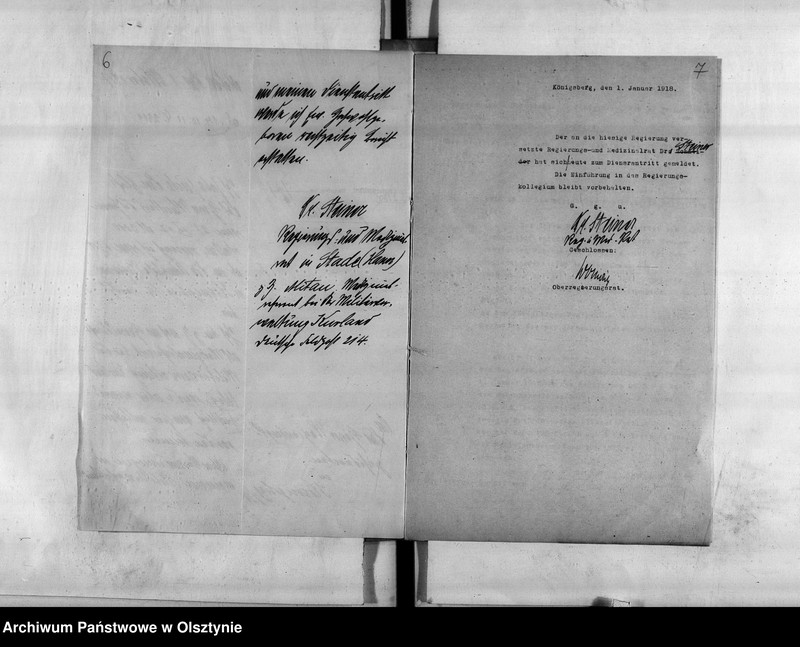 6
und meinen Dienstantritt
werde ich Ew. Hochwohlge-
boren rechtzeitig Bericht
erstatten.
Dr. Steiner
Regierungs- und Medizinal-
rat in Stade (Hann)
z. Z. Mitau, Medizinal-
referent bei der Militärver-
waltung Kurland
Deutsche Feldpost 214.
7
Königsberg, den 1. Januar 1918.
Der an die hiesige Regierung ver-
setzte Regierungs- und Medizinalrat Dr. Steiner
hat sich heute zum Dienstantritt gemeldet.
Die Einführung in das Regierungs-
kollegium bleibt vorbehalten.
G. g. u.
Dr. Steiner
Reg. u Med. Rat
Geschlossen:
Oberregierungsrat.
Archiwum Państwowe w Olsztynie